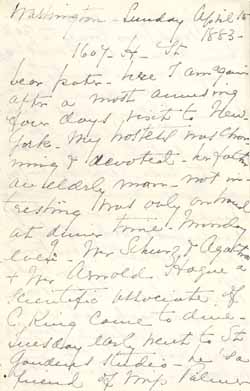 Washington - Sunday April 15
1883 -
1607 - H - St
Dear pater - here I am again
after a most amusing
four days visit to New
York - My hostess was char
ming & devoted - her father
an elderly man - not in
teresting was only on hand
at dinner time - Monday
eve'g - Mr Schurz & Agatha
& Mr Arnold Hague a
scientific associate of
C. King came to dine -
Tuesday early went to St
Gaudens Studio - he is a
friend of Mrs. Palmer